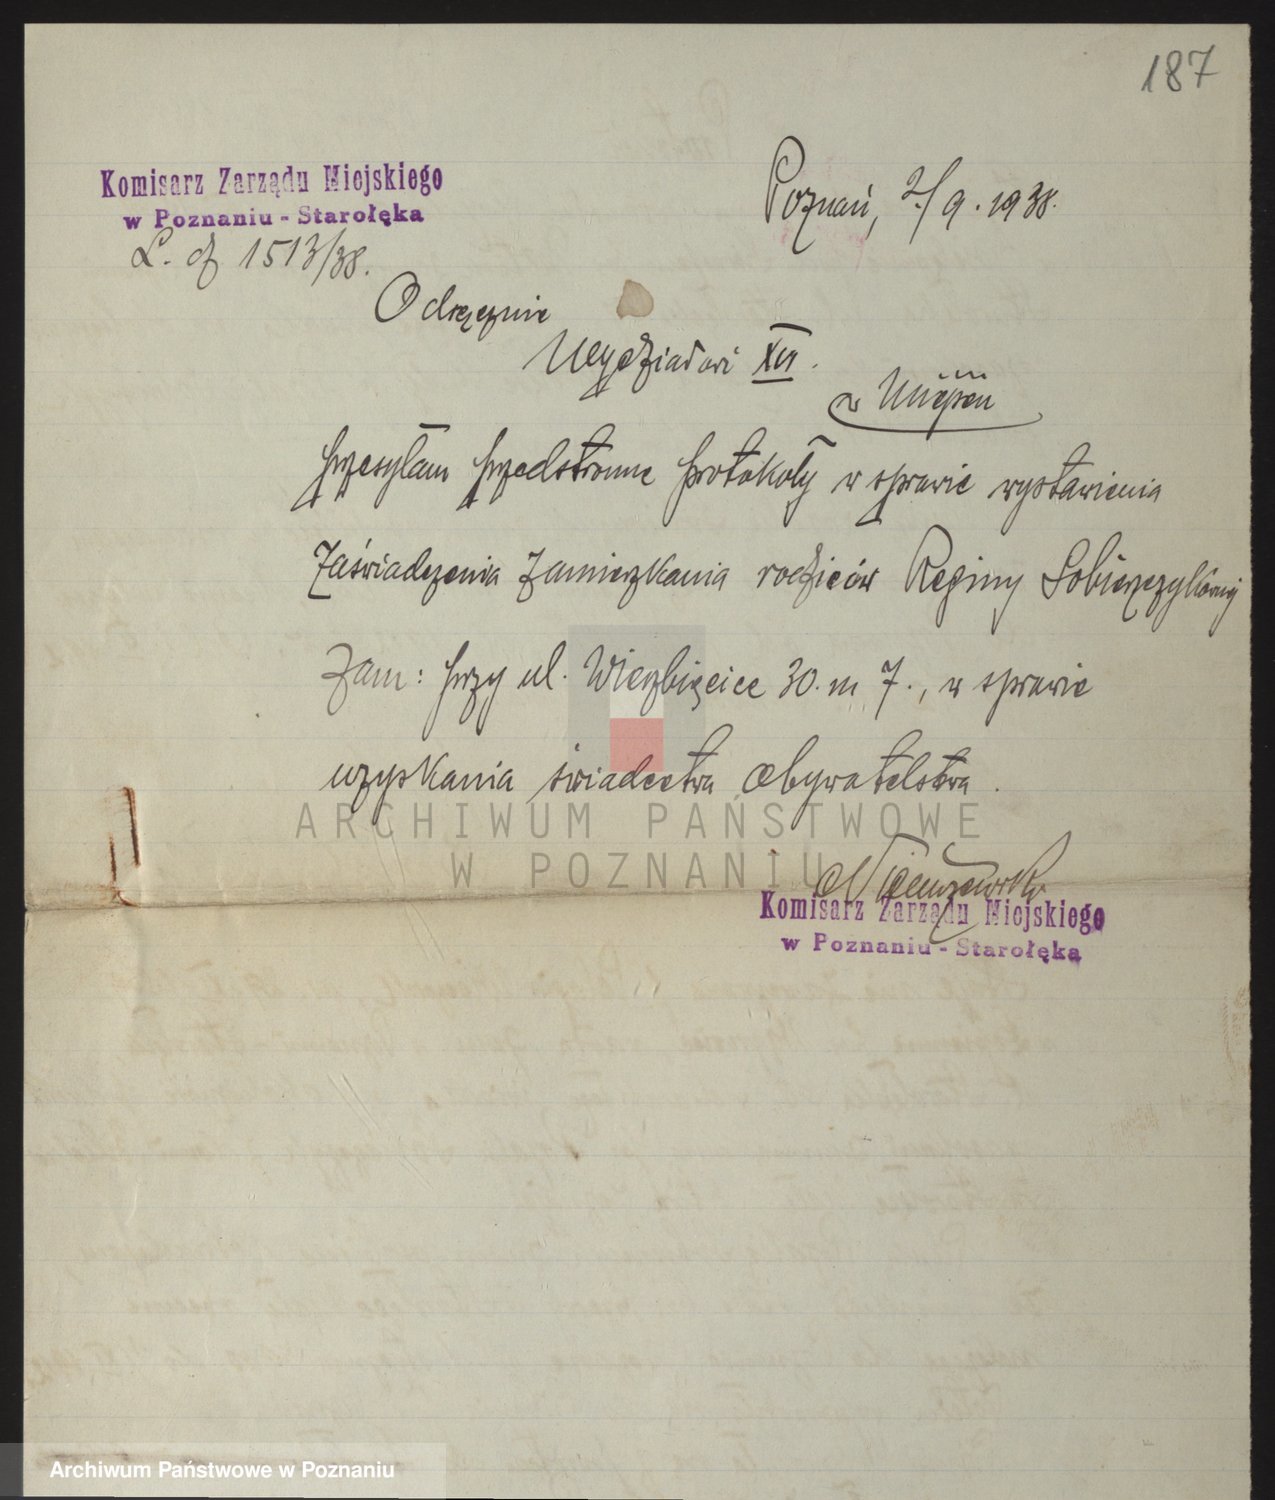 187
Komisarz Zarządu Miejskiego
w Poznaniu - Starołęka
Poznań, 2/9. 1938.
L. dz 1513/38.
Odręcznie
Wydziałowi XVI.
w miejscu
przesyłam przedstronne protokoły w sprawie wystawienia
zaświadczenia zamieszkania rodziców Reginy Sobierzczykównej
zam: przy ul. Wierzbięcice 30. m 7., w sprawie
uzyskania świadectwa obywatelstwa.
ARCHIWUM PAŃSTWOWE
W POZNANIU
Komisarz Zarządu Miejskiego
w Poznaniu - Starołęka
Archiwum Państwowe w Poznaniu